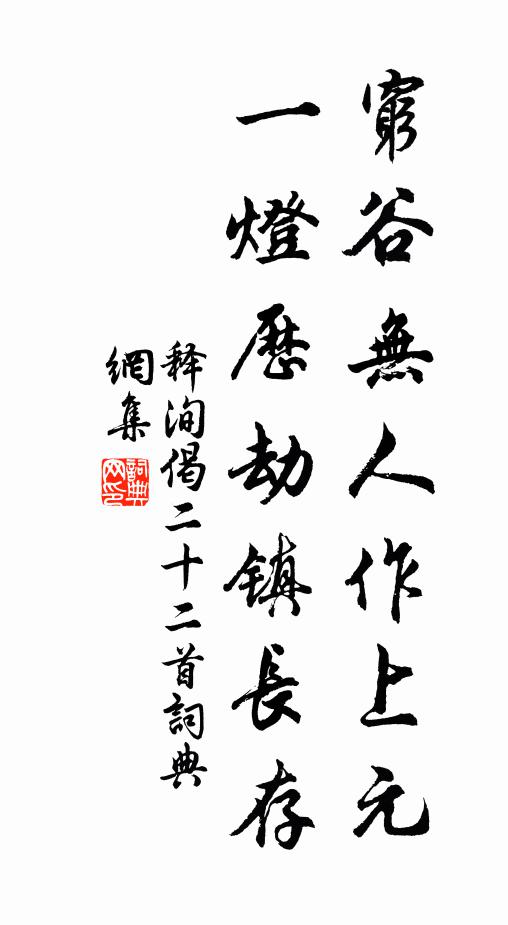 窮谷無人作上元
一燈歷劫鎮長存
释洵偈二十二首詞典
網集
詞典网印